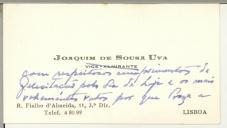 JOAQUIM DE SOUSA UVA
VICE-ALMIRANTE
com respeitosos cumprimentos de
felicitações pelo dia de hoje e os mais
votos por que Deus a
R. Fialho d'Almeida, 11, 3.º Dir.
Telef. 4 80 99
LISBOA